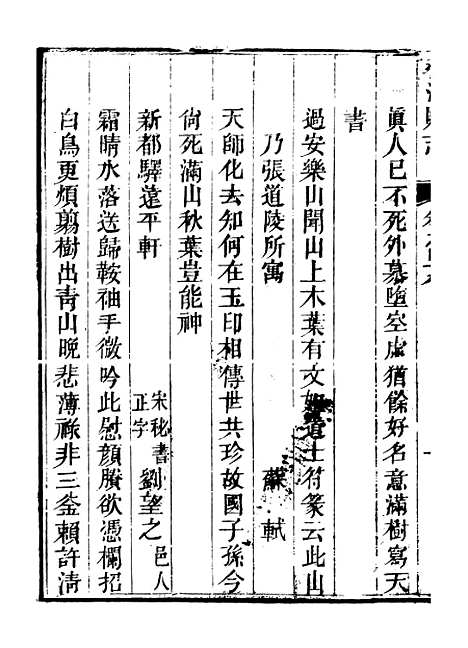 眞人已不死外慕墮空虛猶餘好名意滿樹寫天
書
過安樂山聞山上木葉有文如道士符篆云此山
乃張道陵所寓 蘇軾
天師化去知何在玉印相傳世共珍故國子孫今
尙死滿山秋葉豈能神
新都驛遠平軒 宋秘書正字劉望之邑人
霜晴水落送歸鞍袖手微吟此慰顏賸欲憑欄招
白鳥更煩翦樹出靑山晚悲薄祿非三釜賴許淸